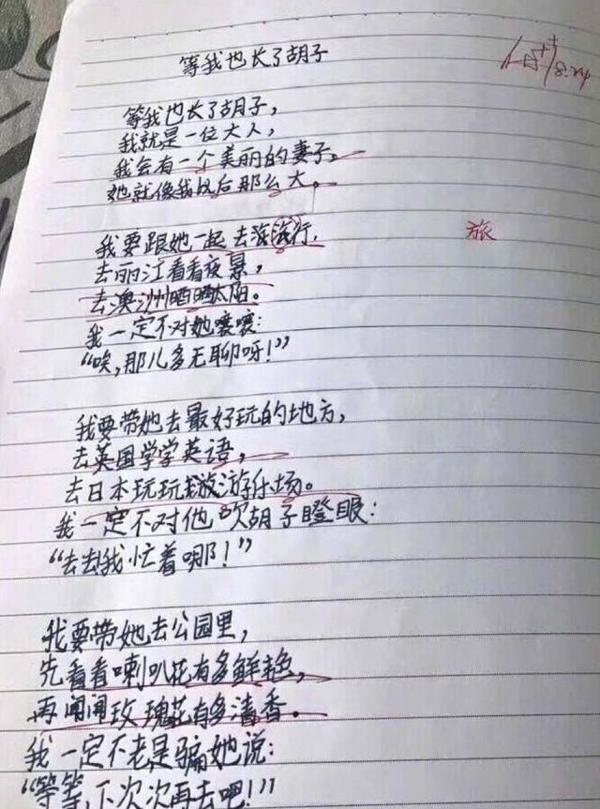 等我也长了胡子
优++ 8.24
等我也长了胡子，
我就是一位大人，
我会有一个美丽的妻子，
她就像我以后那么大。
我要跟她一起去旅行，
旅
去丽江看看夜景，
去澳洲晒晒太阳。
我一定不对她嚷嚷：
“唉，那儿多无聊呀！”
我要带她去最好玩的地方，
去英国学学英语，
去日本玩玩游乐场。
我一定不对他吹胡子瞪眼：
“去去我忙着哪！”
我要带她去公园里，
先看看喇叭花有多鲜艳，
再闻闻玫瑰花有多清香。
我一定不老是骗她说：
“等等，下次次再去吧！”